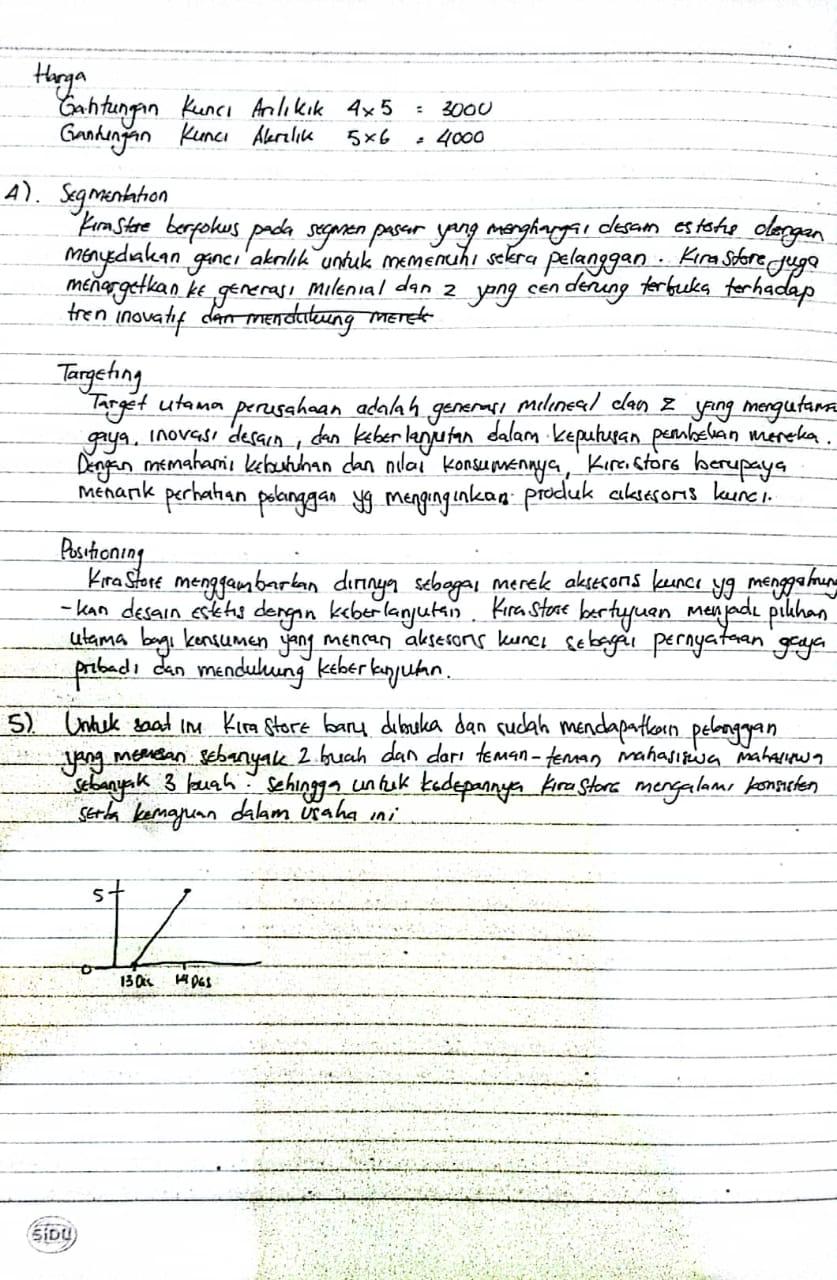 Harga
Gantungan Kunci Arilikik 4x5 = 3000
Gantungan Kunci Akrilik 5x6 = 4000
4). Segmentation
Kira Store berfokus pada segmen pasar yang menghargai desain estetis dengan
menyediakan ganci akrilik untuk memenuhi selera pelanggan. Kira Store juga
menargetkan ke generasi milenial dan z yang cenderung terbuka terhadap
tren inovatif dan mendukung merek
Targeting
Target utama perusahaan adalah generasi milineal dan z yang mengutama
gaya, inovasi desain, dan keberlanjutan dalam keputusan pembelian mereka.
Dengan memahami kebutuhan dan nilai konsumennya, Kira Store berupaya
menarik perhatian pelanggan yg menginginkan produk aksesoris kunci.
Positioning
Kira Store menggambarkan dirinya sebagai merek aksesoris kunci yg menggabung
-kan desain estetis dengan keberlanjutan. Kira Store bertujuan menjadi pilihan
utama bagi konsumen yang mencari aksesoris kunci sebagai pernyataan gaya
pribadi dan mendukung keberlanjutan.
5) Untuk saat ini Kira Store baru dibuka dan sudah mendapatkan pelanggan
yang memesan sebanyak 2 buah dan dari teman-teman mahasiswa mahasiswa
sebanyak 3 buah. Sehingga untuk kedepannya Kira Store mengalami konsisten
serta kemajuan dalam usaha ini
5
0
13 Des 14 Des
SIDU